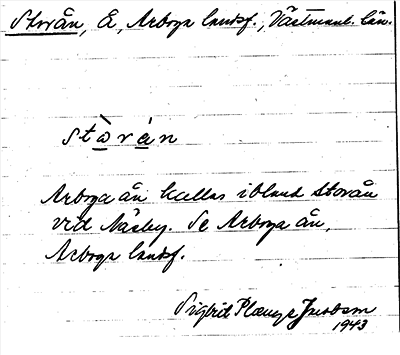 Storån, Å, Arboga landsf., Västmanl. län.
stò̱rá̱n
Arboga ån kallas ibland Storån
vid Näsby. Se Arboga ån,
Arboga landsf.
Sigbrit Plænge Jacobson
1943